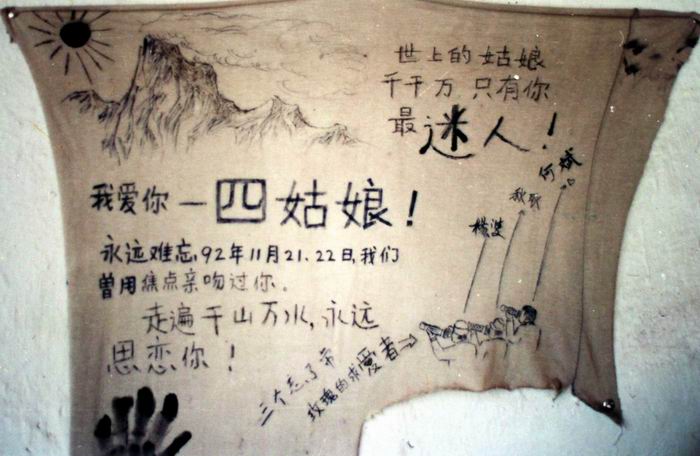 世上的姑娘
千千万 只有你
最迷人!
我爱你—四姑娘!
永远难忘,92年11月21.22日,我们
曾用焦点亲吻过你。
走遍千山万水,永远
思恋你!
三个忘了带
玫瑰的求爱者